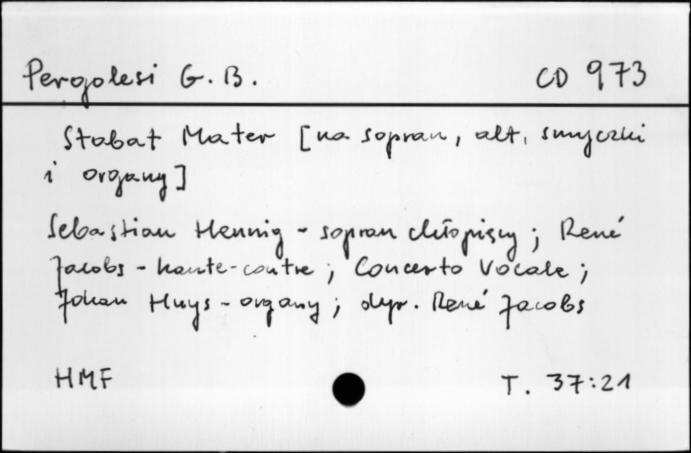 Pergolesi G. B. CD 973
Stabat Mater [na sopran, alt, smyczki
i organy]
Sebastian Hennig - sopran chłopięcy; René
Jacobs - haute-contre; Concerto Vocale;
Johan Huys - organy; dyr. René Jacobs
HMF T. 37:21